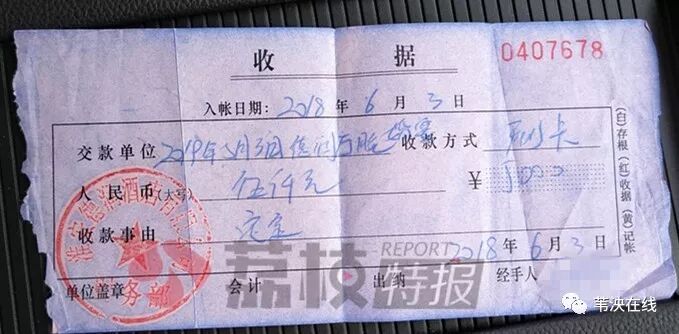 收 据
0407678
入帐日期: 2018 年 6 月 3 日
交款单位 2019年 月3日 收款方式 刷卡
人民币(大写) 伍仟元 ¥ 5000
收款事由 定金
2018 年 6 月 3 日
单位盖章 会计 出纳 经手人
(白)存根 (红)收据 (黄)记帐
酒
务部
荔枝特报
REPORT
苇泱在线